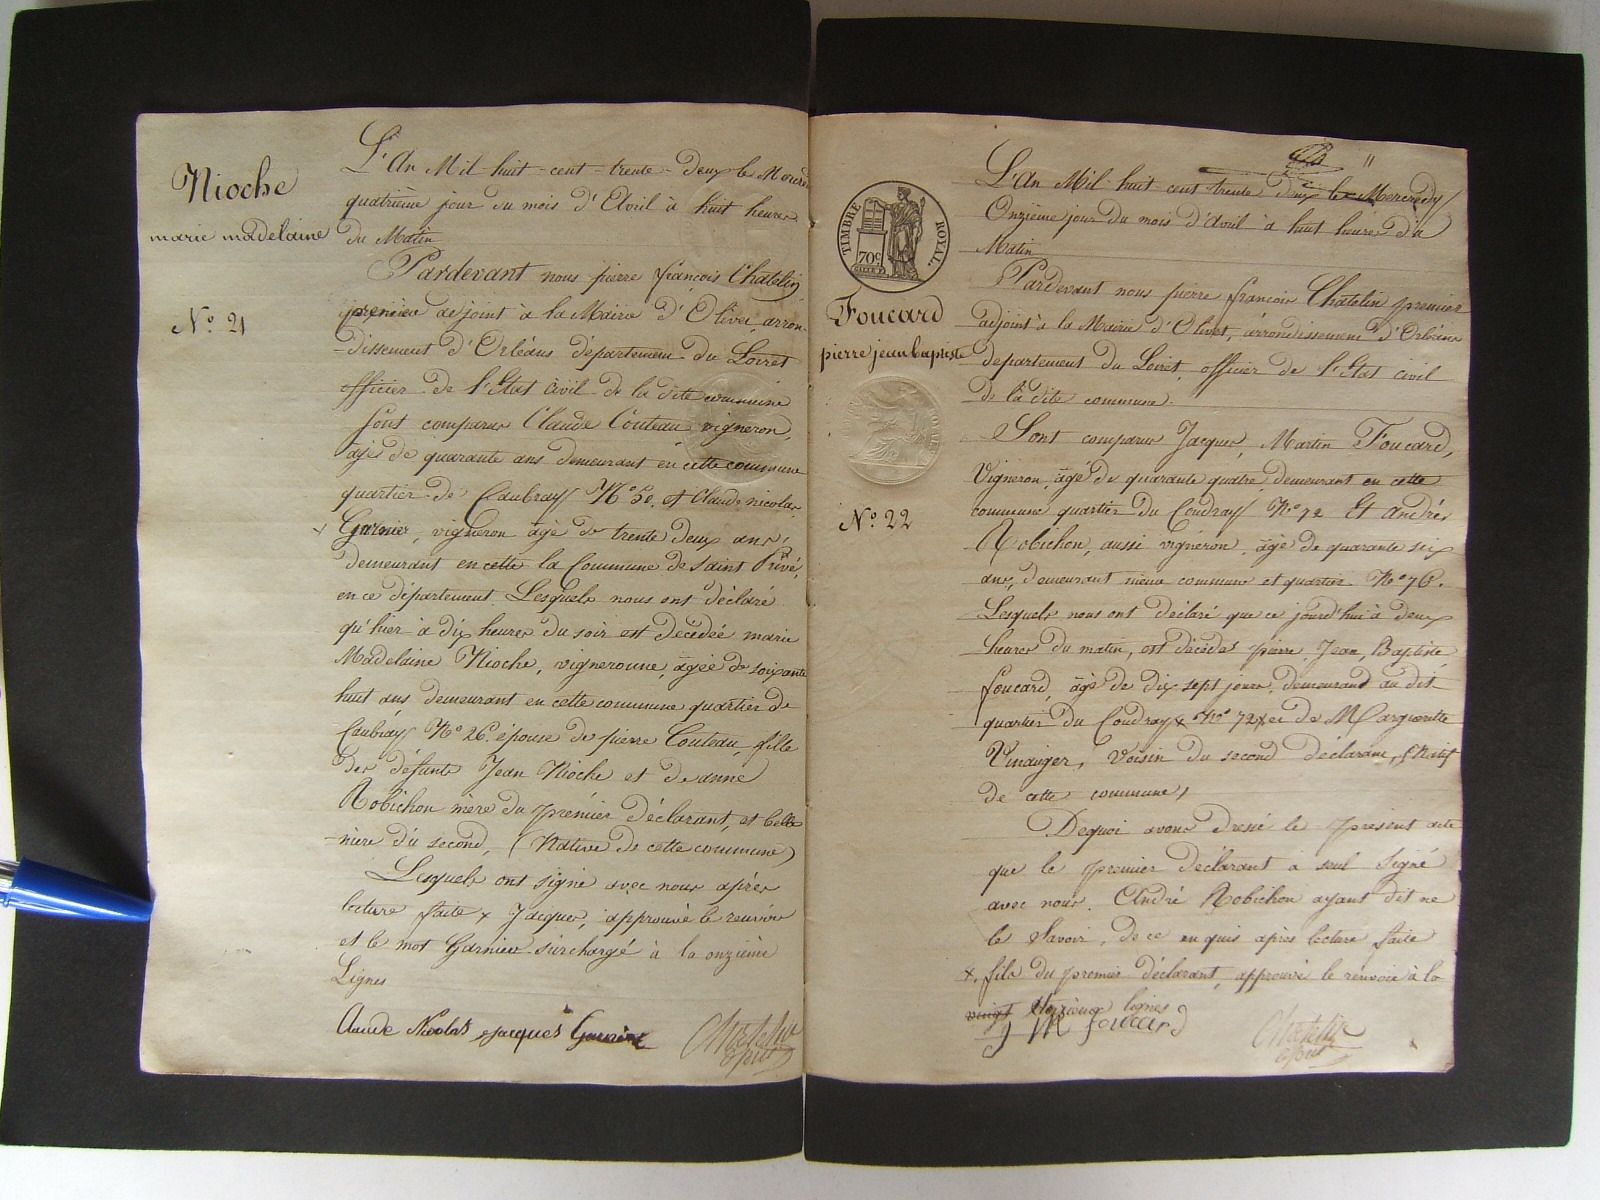 Nioche
marie madelaine
N.º 21
L'An Mil huit cent trente deux le
quatrième jour du mois d'Avril à huit heures
du Matin
Pardevant nous pierre françois Chatelin
premier adjoint à la Mairie d'Olivet, arron-
-dissement d'Orléans département du Loiret
officier de l'État civil de la dite commune
Sont comparus Claude Couteau vigneron,
âgé de quarante ans demeurant en cette commune
quartier de Caubray N.º 30. et Claude nicolas
Garnier, vigneron âgé de trente deux ans,
demeurant en cette la Commune de Saint Privé,
en ce département. Lesquels nous ont déclaré
qu'hier à dix heures du soir est décédée marie
Madelaine Nioche, vigneronne, âgée de soixante
huit ans demeurant en cette commune quartier de
Caubray N.º 26. épouse de pierre Couteau, fille
des défunts Jean Nioche et de anne
Robichon mère du premier déclarant, et belle
-mère du second, (Native de cette commune)
Lesquels ont signé avec nous après
lecture faite x Jacques, approuvé le renvoi
et le mot Garnier surchargé à la onzième
Lignes
Claude Nicolas Jacques Garnier
Chatelin
adjoint
11
TIMBRE ROYAL
70c
Foucard
pierre jean baptiste
N.º 22
L'An Mil huit cent trente deux le Mercredy
Onzième jour du mois d'Avril à huit heures du
Matin
Pardevant nous pierre françois Chatelin premier
adjoint à la Mairie d'Olivet, arrondissement d'Orléans
departement du Loiret, officier de l'État civil
de la dite commune.
Sont comparus Jacques, Martin Foucard,
Vigneron, âgé de quarante quatre, demeurant en cette
commune quartier du Coudray N.º 72 Et André
Robichon, aussi vigneron, âgé de quarante six
ans, demeurant même commune et quartier N.º 76.
Lesquels nous ont déclaré que ce jourd'hui à deux
heures du matin, est décédé pierre, Jean, Baptiste
foucard, âgé de dix sept jours, demeurand au dit
quartier du Coudray N.º 72 x et de Marguerite
Vinauger, Voisin du second déclarant, (Natif
de cette commune)
Dequoi avons dressé le présent acte
que le premier déclarant a seul signé
avec nous. André Robichon ayant dit ne
le Savoir, de ce enquis après lecture faite
x. fils du premier déclarant, approuvé le renvoie à la
vingt lignes
J M foucard
Chatelin
adjoint